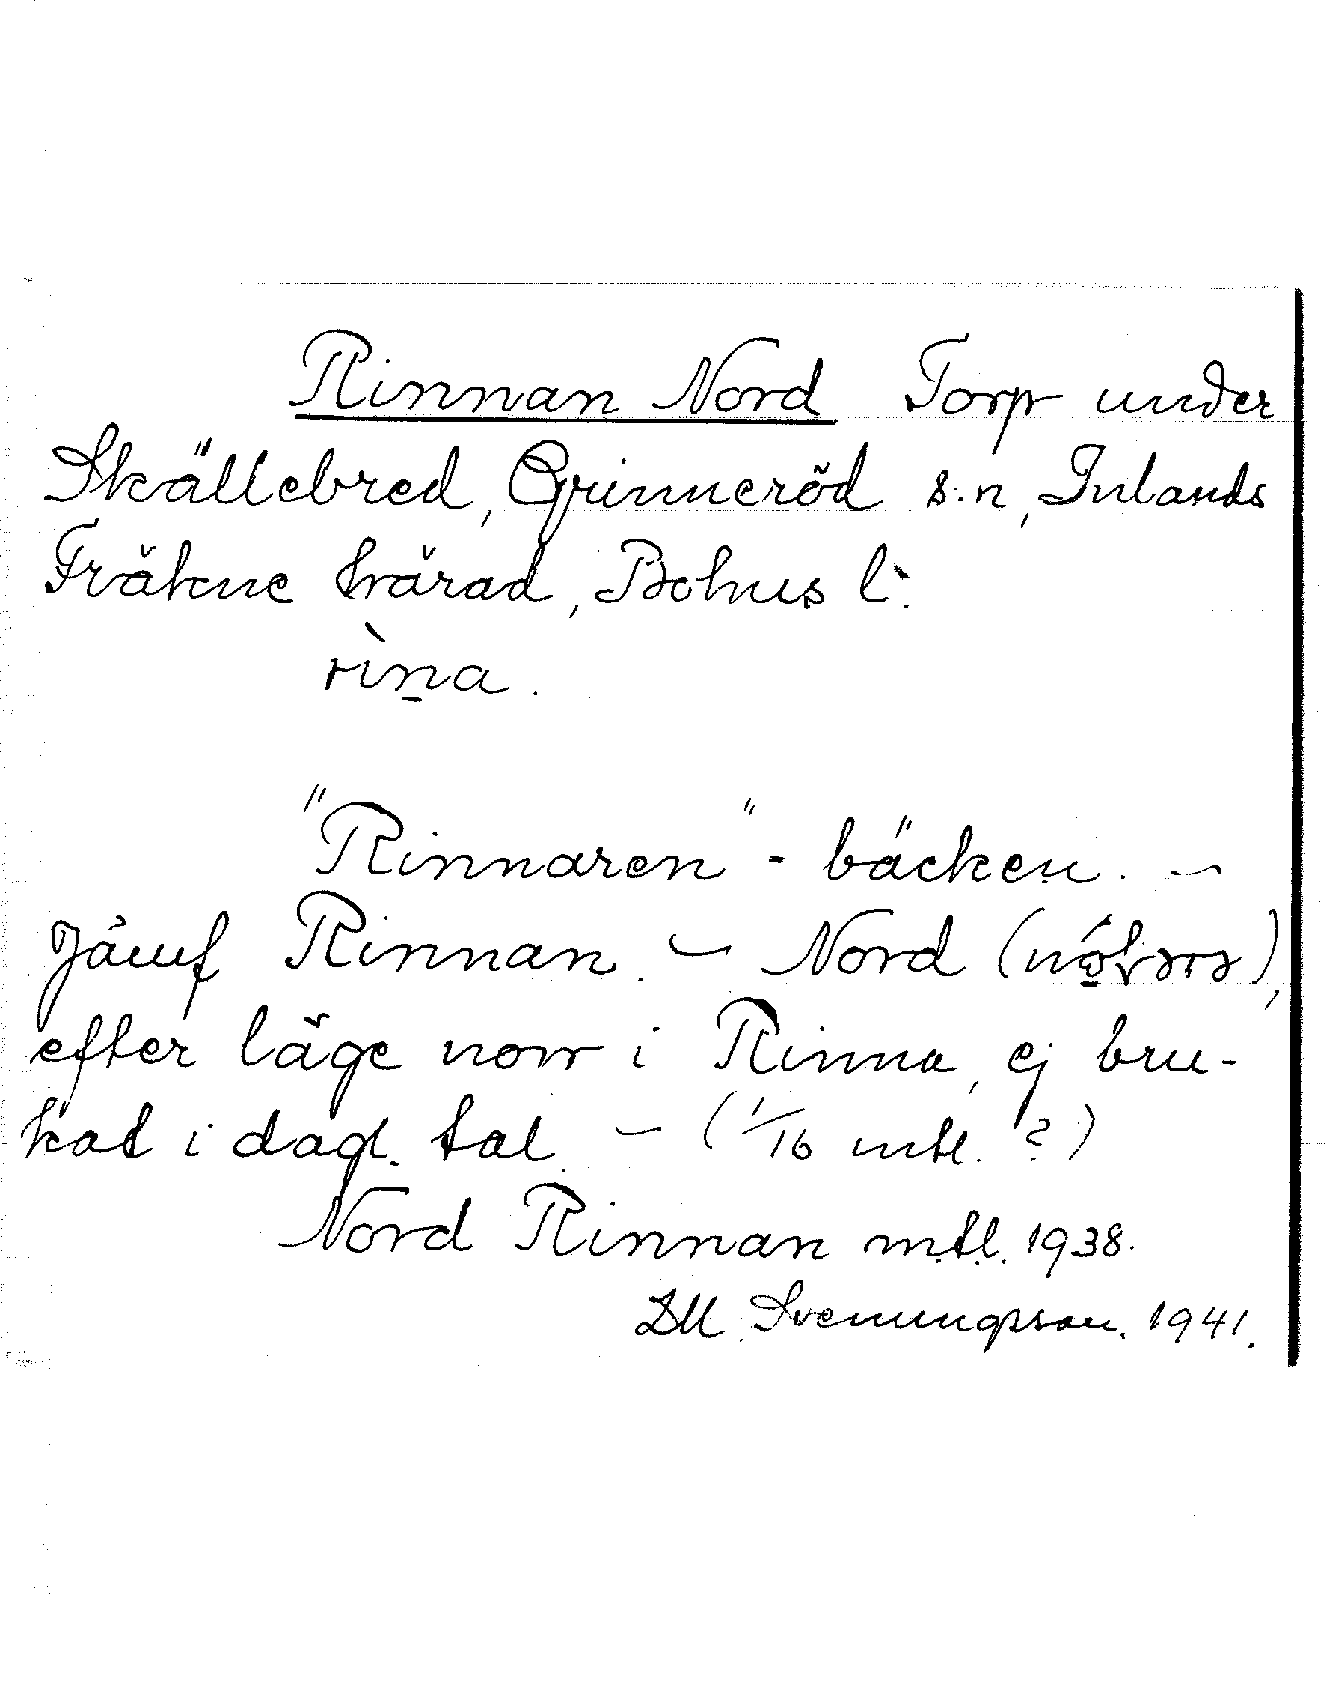 Rinnan Nord Torp under
Skällebred, Grinneröd s:n, Inlands
Fräkne härad, Bohus l:
rìn̠a.
"Rinnaren" - bäcken. –
Jämf Rinnan. – Nord
efter läge norr i Rinna, ej bru-
kat i dagl. tal. – (1/16 mtl. ?)
Nord Rinnan m.t.l. 1938.
DM. Svenungsson. 1941.